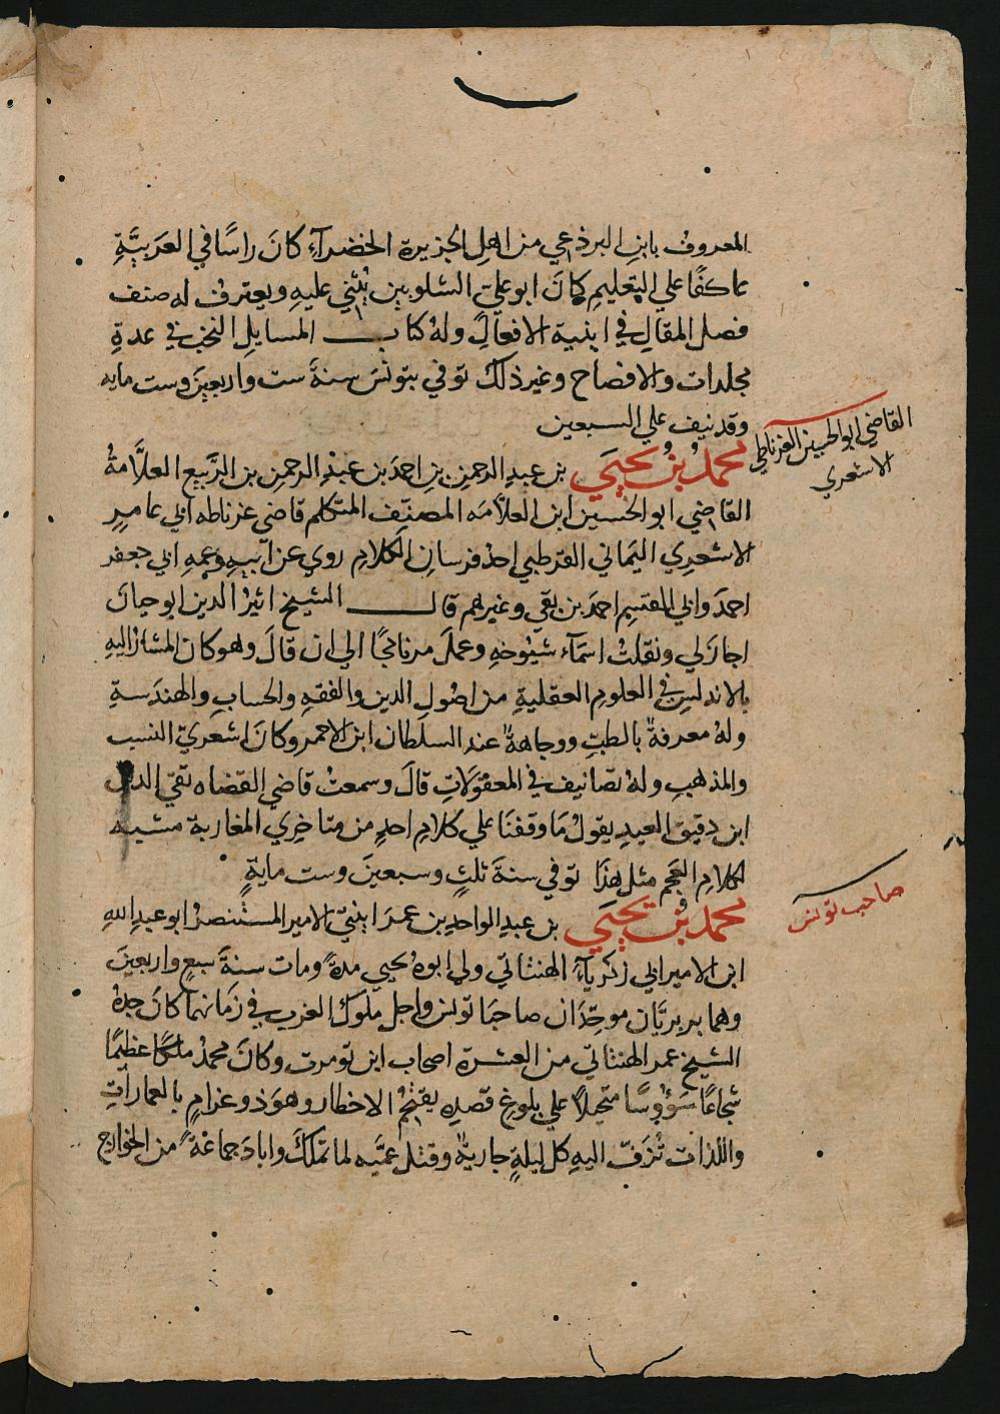 المعروف بابنِ البرذعي من اهل الجزيرة الخضراءِ كانَ راسًا في العَرَبيَّةِ
عاكفًا علي التعليمِ كانَ ابو عليّ الشلوبين يُثني عليهِ ويعترفُ له صنف
فصل المقالِ في ابنية الافعالِ ولهُ كتاب المسايلِ النخبِ في عدةِ
مجلدات والافصاح وغير ذلك توفي بتونسَ سنةَ ست واربعينَ وست مايه
وقد نيف علي السبعين
القاضي ابو الحسين الغرناطي
الاشعري
محمدُ بنُ يحيَي بن عبدِ الرحمنِ بنِ احمدَ بن عبدِ الرحمنِ بن الرَّبيع العلَّامةُ
القاضي ابو الحسين ابن العلامَه المصنِّف المتكلم قاضي غرناطه ابي عامِرٍ
الاشعرِي اليمَاني القرطبي احدُ فرسانِ الكلامِ روي عن ابيهِ وعمهِ ابي جعفر
احمدَ وابي القسِم احمدَ بن بقي وغيرهم قال الشيخ اثيرُ الدين ابو حيانَ
اجازَ لي ونقلتُ اسمَآءَ شيُوخهِ وعملَ برنامجًا الي ان قالَ وهو كان المشارَ اليهِ
بالاندلسِ في العلومِ العقليةِ من اصُولِ الدين والفقهِ والحسابِ والهندَسةِ
ولهُ معرفةٌ بالطبِّ ووجاهةٌ عند السلطان ابن الاحمر وكانَ اشعريّ النسب
والمذهبِ ولهُ تصَانيف في المعقولَاتِ قالَ وسمعتُ قاضي القضاه تقيّ الدين
ابن دقيق العيدِ يقولُ مَا وقفنَا علي كلامِ احدٍ من متاخِرِي المغاربة مشبه
لكلامِ العَجم مثل هذَا توفي سنةَ ثلثٍ وسبعينَ وست مايةٍ
صاحب تونس
محمد بن يحيَي بن عبدِ الواحدِ بن عمرَ اينتي الامير المستنصرُ ابو عبدِ اللهِ
ابن الامير ابي زكريَآءَ الهنتاتي ولي ابوهُ يحيي مدةً ومات سنةَ سبعٍ واربعينَ
وهما بربريَّان موحِّدَان صاحبَا تونس واجل ملوك الغرب في زمَانهما كانَ جدهُ
الشيخ عمر الهنتاتي من العشرة اصحاب ابن تومرت وكانَ محمدُ ملكًا عظيمًا
شجاعًا سَؤُوسًا متحيلًا علي بلوغِ قصدِه يقتحمُ الاخطار وهوَ ذو غرامٍ بالعماراتِ
واللذات تُزَفّ اليهِ كل ليلةٍ جاريةٌ وقتل عمَّيه لما تملكَ وابادَ جماعَةً من الخوارج